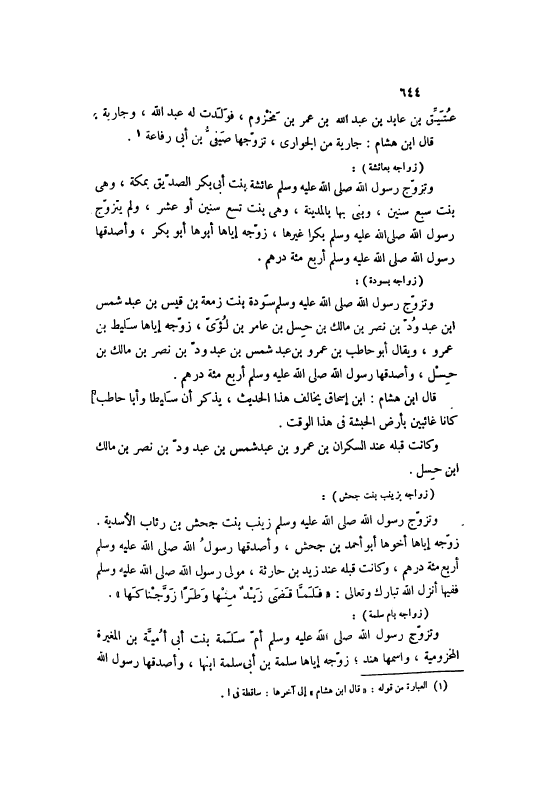 ٦٤٤
عُتَيِّق بن عابد بن عبد الله بن عمر بن مَخْزوم ، فوَلَدت له عبد الله ، وجارية .
قال ابن هشام : جارية من الجوارى ، تزوّجها صَيْفىُّ بن أبى رفاعة ١ .
( زواجه بعائشة ) :
وتزوّج رسول الله صلى الله عليه وسلم عائشة بنت أبى بكر الصديق بمكة ، وهى
بنت سبع سنين ، وبنى بها بالمدينة ، وهى بنت تسع سنين أو عشر ، ولم يتزوّج
رسول الله صلى الله عليه وسلم بكرا غيرها ، زوّجه إياها أبوها أبو بكر ، وأصدقها
رسول الله صلى الله عليه وسلم أربع مئة درهم .
( زواجه بسودة ) :
وتزوّج رسول الله صلى الله عليه وسلم سَوْدة بنت زمعة بن قيس بن عبد شمس
ابن عبد وُدّ بن نصر بن مالك بن حِسل بن عامر بن لُؤَىّ ، زوّجه إياها سَليط بن
عمرو ، ويقال أبو حاطب بن عمرو بن عبد شمس بن عبد ودّ بن نصر بن مالك بن
حِسْل ، وأصدقها رسول الله صلى الله عليه وسلم أربع مئة درهم .
قال ابن هشام : ابن إسحاق يخالف هذا الحديث ، يذكر أن سَليطا وأبا حاطب
كانا غائبين بأرض الحبشة فى هذا الوقت .
وكانت قبله عند السكران بن عمرو بن عبد شمس بن عبد ودّ بن نصر بن مالك
ابن حِسل .
( زواجه بزينب بنت جحش ) :
وتزوّج رسول الله صلى الله عليه وسلم زينب بنت جحش بن رئاب الأسدية .
زوّجه إياها أخوها أبو أحمد بن جحش ، وأصدقها رسولُ الله صلى الله عليه وسلم
أربع مئة درهم ، وكانت قبله عند زيد بن حارثة ، مولى رسول الله صلى الله عليه وسلم
ففيها أنزل الله تبارك وتعالى : « فَلَمَّا قَضَى زَيْدٌ مِنْها وَطَرًا زَوَّجْناكَها » .
( زواجه بأم سلمة ) :
وتزوّج رسول الله صلى الله عليه وسلم أمّ سَلَمة بنت أبى أُميَّة بن المغيرة
المخزومية ، واسمها هند ؛ زوّجه إياها سلمة بن أبى سلمة ابنها ، وأصدقها رسول الله
(١) العبارة من قوله : « قال ابن هشام » إلى آخرها : ساقطة فى ا .